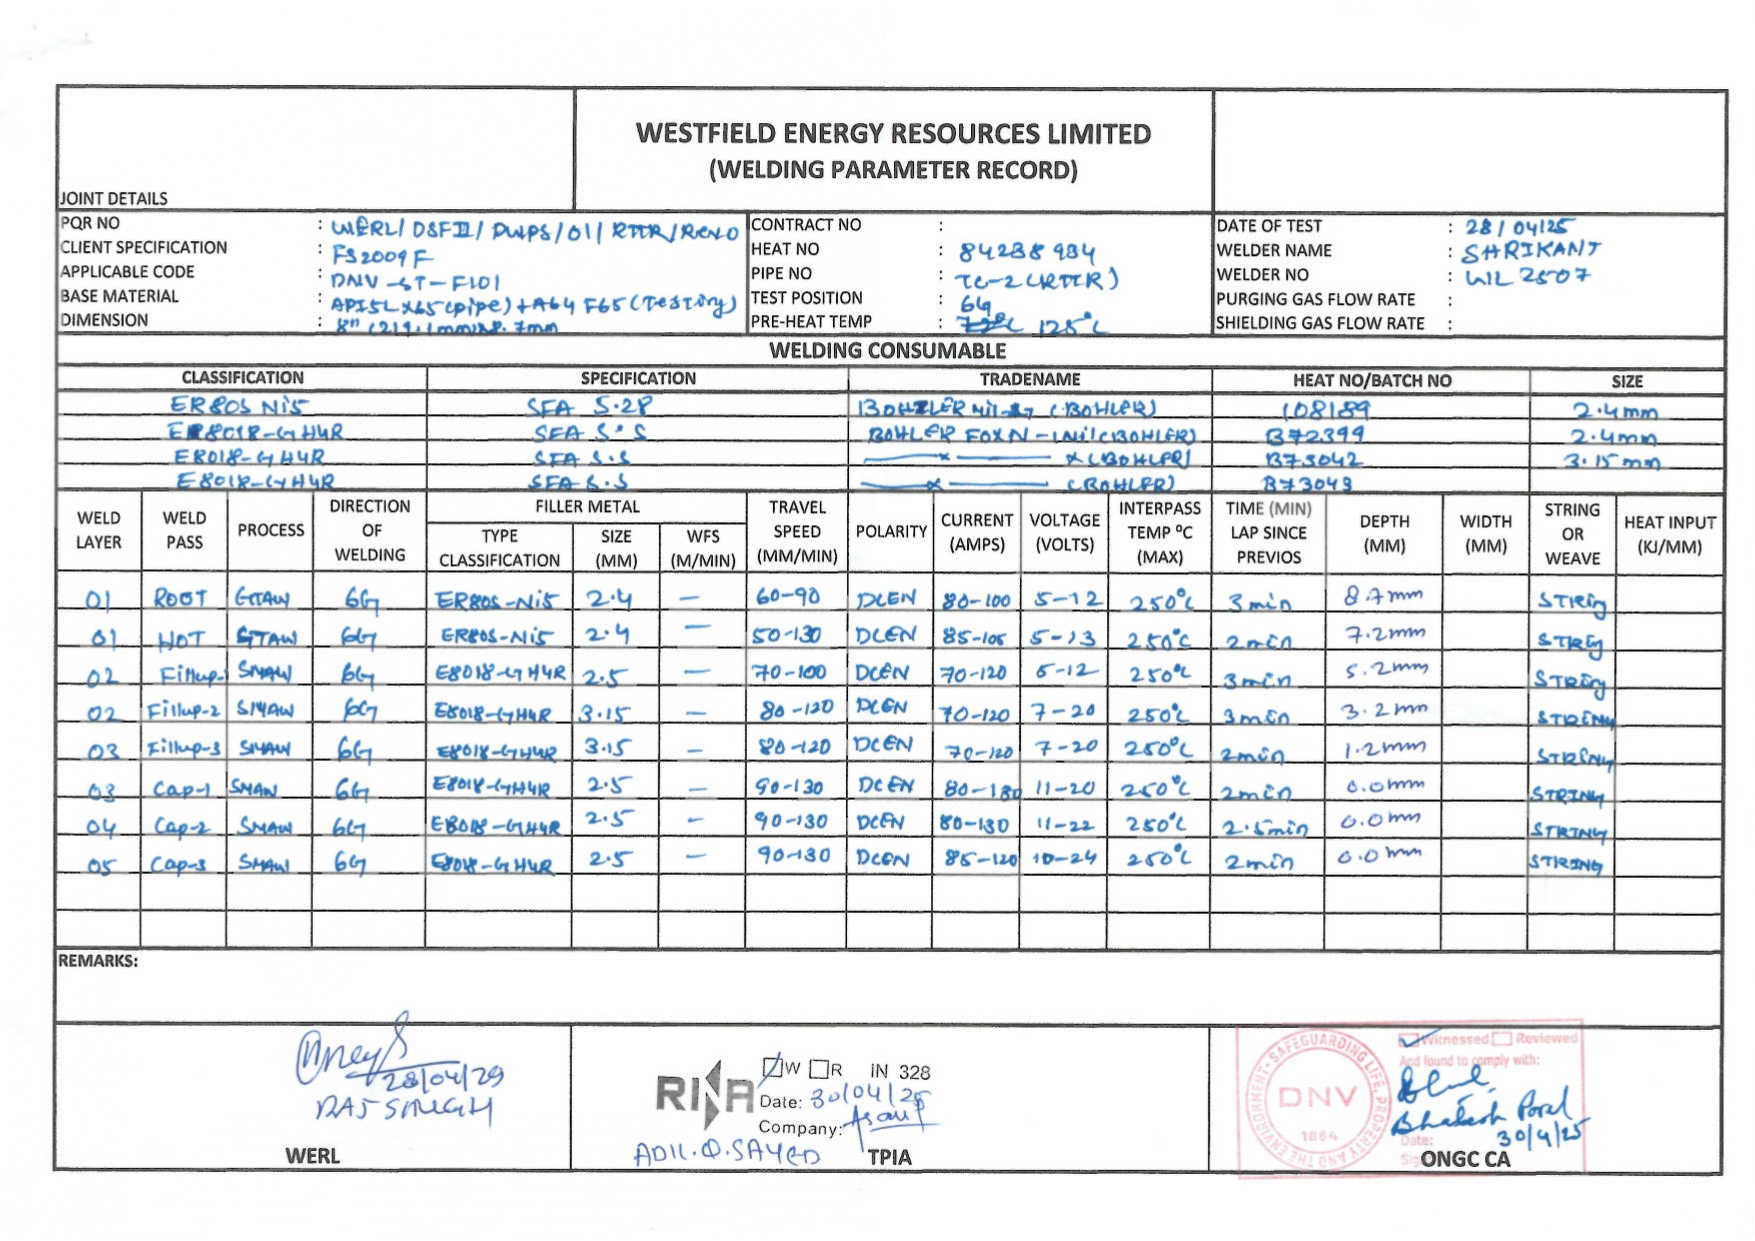 WESTFIELD ENERGY RESOURCES LIMITED
(WELDING PARAMETER RECORD)
JOINT DETAILS
PQR NO : WERL/ DSF II/ PWPS/01/ RTTR/
CLIENT SPECIFICATION : FS2009F
APPLICABLE CODE : DNV-ST-F101
BASE MATERIAL : API5L X65(pipe)+A64 F65(Testing)
DIMENSION : 8" (219.1mm)x8.7mm
CONTRACT NO :
HEAT NO : 84238934
PIPE NO : TC-2(RTTR)
TEST POSITION : 6G
PRE-HEAT TEMP : 125°C
DATE OF TEST : 28/04/25
WELDER NAME : SHRIKANT
WELDER NO : WL2507
PURGING GAS FLOW RATE :
SHIELDING GAS FLOW RATE :
WELDING CONSUMABLE
CLASSIFICATION SPECIFICATION TRADENAME HEAT NO/BATCH NO SIZE
ER80S Ni5 SFA 5.28 (BOHLER) 108189 2.4mm
E8018-GH4R SFA 5.5 BOHLER FOXN-(BOHLER) B72399 2.4mm
E8018-GH4R SFA 5.5 x (BOHLER) B73042 3.15mm
E8018-GH4R SFA 5.5 x (BOHLER) B73043
WELD LAYER WELD PASS PROCESS DIRECTION OF WELDING FILLER METAL TYPE CLASSIFICATION SIZE (MM) WFS (M/MIN) TRAVEL SPEED (MM/MIN) POLARITY CURRENT (AMPS) VOLTAGE (VOLTS) INTERPASS TEMP ⁰C (MAX) TIME (MIN) LAP SINCE PREVIOS DEPTH (MM) WIDTH (MM) STRING OR WEAVE HEAT INPUT (KJ/MM)
01 ROOT GTAW 6G ER80S-Ni5 2.4 – 60-90 DCEN 80-100 5-12 250°C 3min 8.7mm STRing
01 HOT GTAW 6G ER80S-Ni5 2.4 – 50-130 DCEN 85-105 5-13 250°C 2min 7.2mm STRing
02 Fillup-1 SMAW 6G E8018-GH4R 2.5 – 70-100 DCEN 70-120 5-12 250°C 3min 5.2mm STRing
02 Fillup-2 SMAW 6G E8018-GH4R 3.15 – 80-120 DCEN 70-120 7-20 250°C 3min 3.2mm STRING
03 Fillup-3 SMAW 6G E8018-GH4R 3.15 – 80-120 DCEN 70-120 7-20 250°C 2min 1.2mm STRING
03 Cap-1 SMAW 6G E8018-GH4R 2.5 – 90-130 DCEN 80-130 11-20 250°C 2min 0.0mm STRING
04 Cap-2 SMAW 6G E8018-GH4R 2.5 – 90-130 DCEN 80-130 11-22 250°C 2.5min 0.0mm STRING
05 Cap-3 SMAW 6G E8018-GH4R 2.5 – 90-130 DCEN 85-120 10-24 250°C 2min 0.0mm STRING
REMARKS:
28/04/29
RAJ SINGH
WERL
RINA
W R IN 328
Date: 30/04/25
Company:
ADIL.Q.SAYED
TPIA
SAFEGUARDING LIFE, PROPERTY AND THE ENVIRONMENT
DNV
1864
Witnessed Reviewed
And found to comply with:
Bhabesh Porel
Date: 30/4/25
ONGC CA